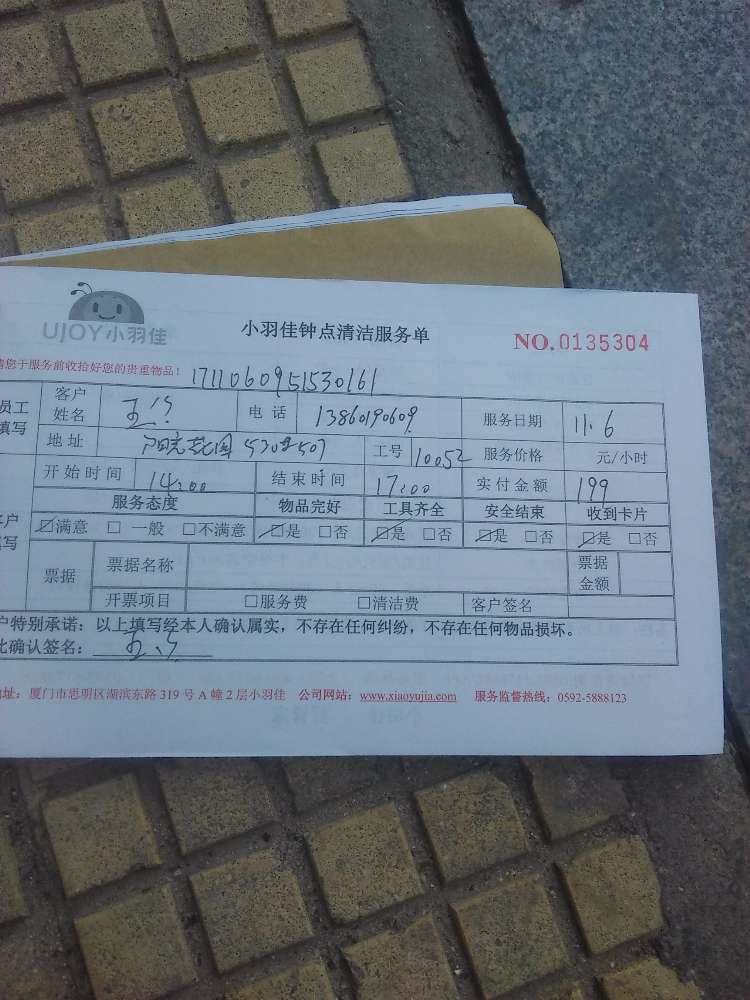 UJOY小羽佳 小羽佳钟点清洁服务单 NO.0135304
请您于服务前收拾好您的贵重物品！ 1711060951530161
员工填写 客户姓名 电话 13860190609 服务日期 11.6
地址 阳光花园 工号 10052 服务价格 元/小时
开始时间 14:00 结束时间 17:00 实付金额 199
服务态度 物品完好 工具齐全 安全结束 收到卡片
☑满意 □一般 □不满意 ☑是 □否 ☑是 □否 ☑是 □否 ☑是 □否
票据 票据名称 票据金额
开票项目 □服务费 □清洁费 客户签名
户特别承诺：以上填写经本人确认属实，不存在任何纠纷，不存在任何物品损坏。
此确认签名：
地址：厦门市思明区湖滨东路 319 号 A 幢 2 层小羽佳 公司网站：www.xiaoyujia.com 服务监督热线：0592-5888123